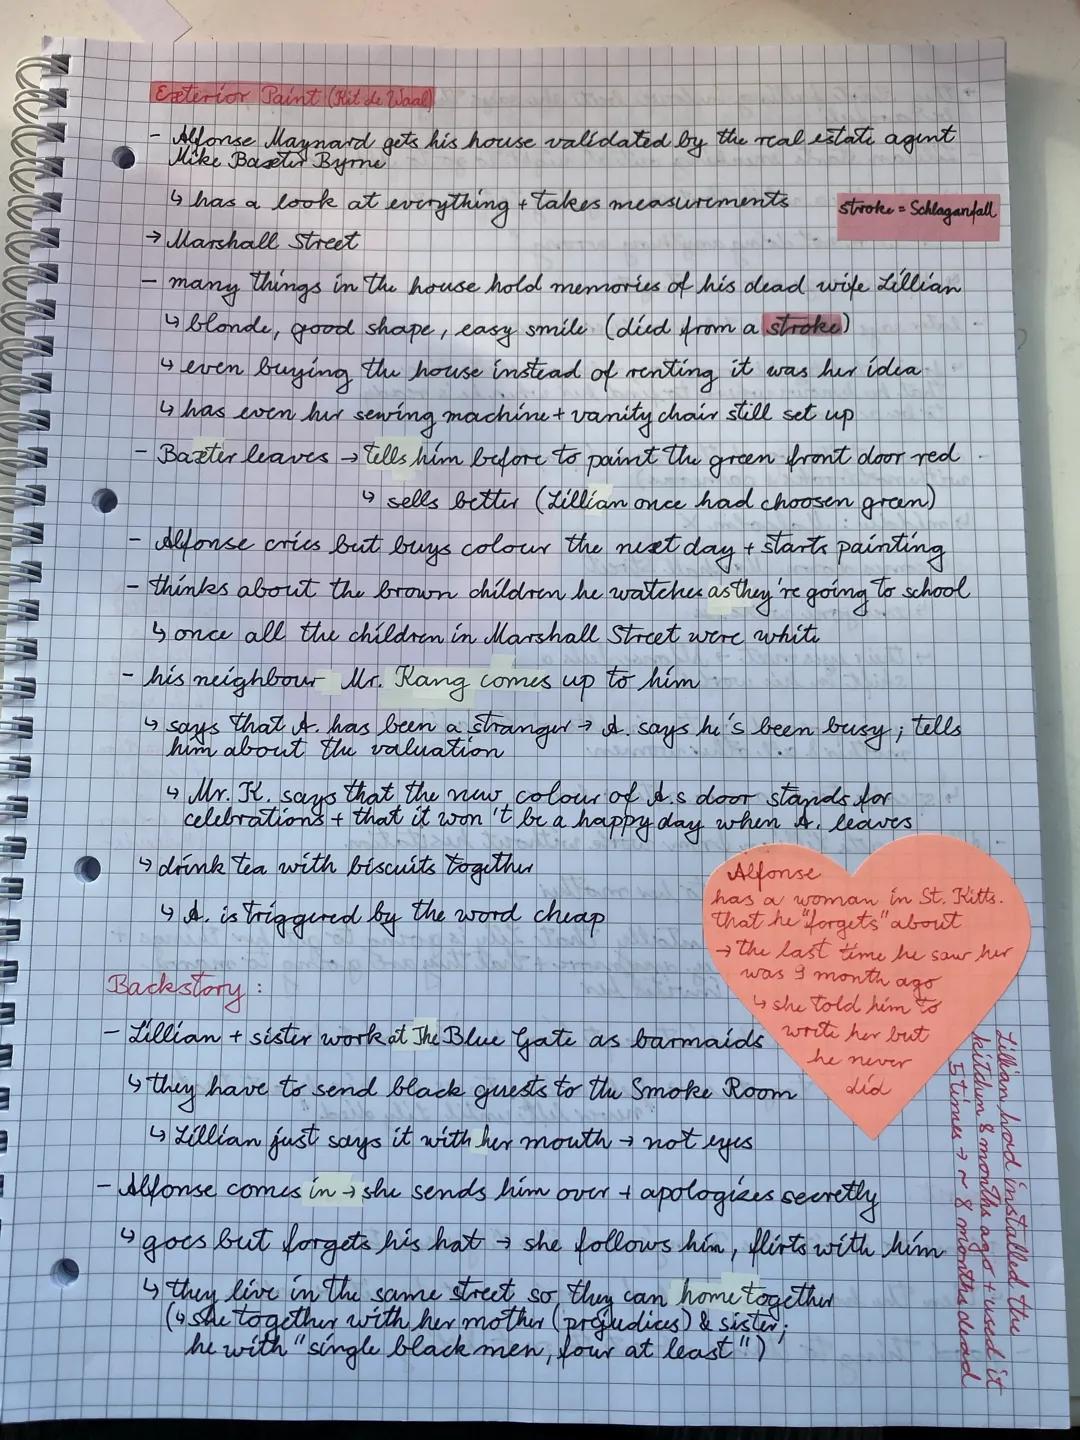 Exterior Paint (Kit de Waal)
- Alfonse Maynard gets his house validated by the real estate agent
Mike Baxter Byrne
↳ has a look at everything + takes measurements
stroke = Schlaganfall
→ Marshall Street
- many things in the house hold memories of his dead wife Lillian
↳ blonde, good shape, easy smile (died from a stroke)
↳ even buying the house instead of renting it was her idea
↳ has even her sewing machine + vanity chair still set up
- Baxter leaves → tells him before to paint the green front door red
↳ sells better (Lillian once had choosen green)
- Alfonse cries but buys colour the next day + starts painting
- thinks about the brown children he watches as they're going to school
↳ once all the children in Marshall Street were white
- his neighbour Mr. Kang comes up to him
↳ says that A. has been a stranger → A. says he's been busy; tells
him about the valuation
↳ Mr. K. says that the new colour of A.s door stands for
celebrations + that it won't be a happy day when A. leaves
↳ drink tea with biscuits together
↳ A. is triggered by the word cheap
Alfonse
has a woman in St. Kitts.
that he "forgets" about
→ the last time he saw her
was 9 month ago
↳ she told him to
write her but
he never
did
Backstory:
- Lillian + sister work at The Blue Gate as barmaids
↳ they have to send black guests to the Smoke Room
↳ Lillian just says it with her mouth → not eyes
- Alfonse comes in → she sends him over + apologizes secretly
↳ goes but forgets his hat → she follows him, flirts with him
↳ they live in the same street so they can home together
(↳ she together with her mother (prejudices) & sister;
he with "single black men, four at least")
Lillian had installed the
kitchen 8 months ago + used it
5 times → ~ 8 months dead